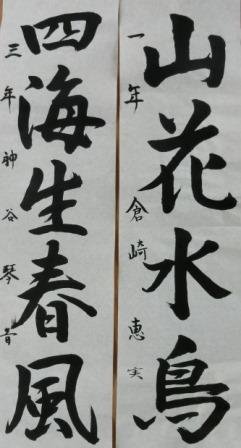 山花水鳥
一年 倉崎恵実
四海生春風
三年 神谷琴音